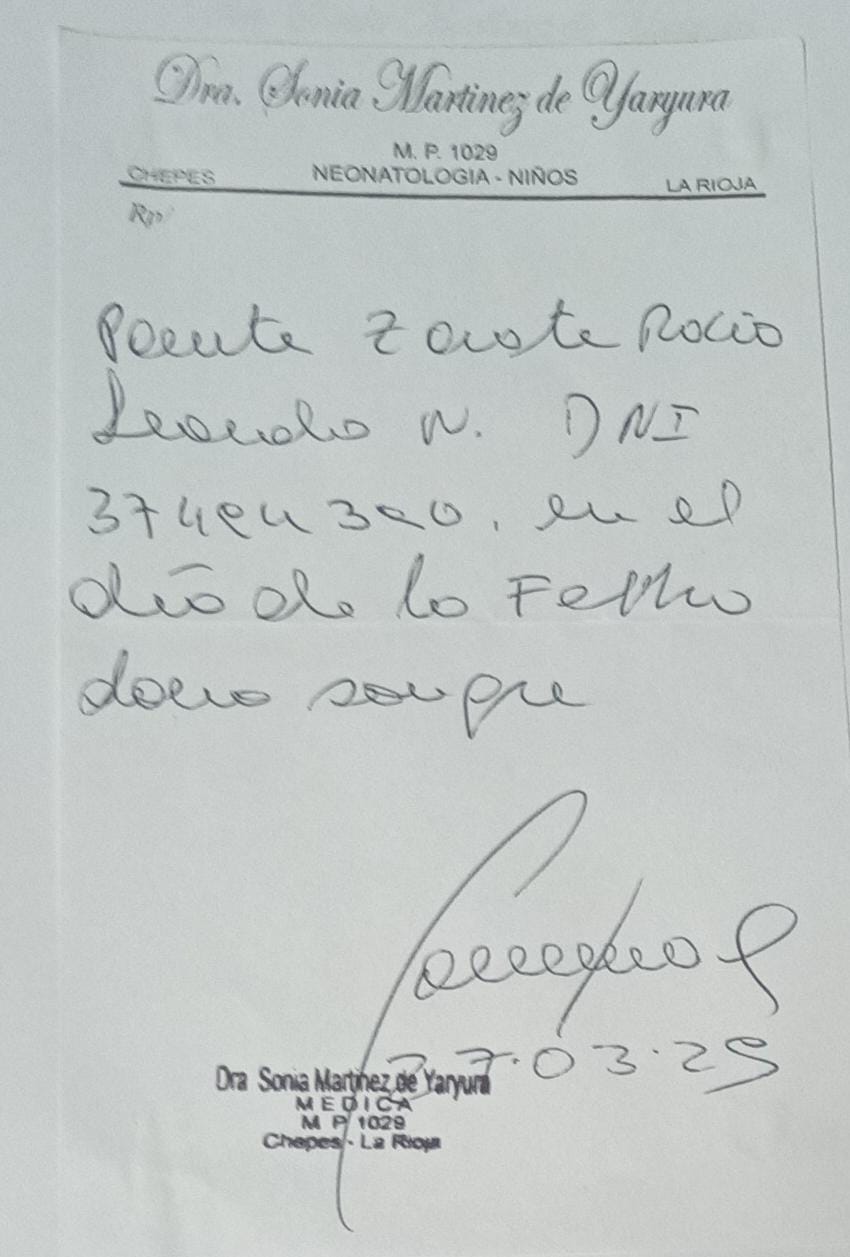 Dra. Sonia Martinez de Yaryura
M. P. 1029
CHEPES NEONATOLOGIA - NIÑOS LA RIOJA
Rp/
Zarate Rocio
N. DNI
en el
día de la Fecha
dono sangre
27.03.25
Dra Sonia Martinez de Yaryura
MEDICA
M P 1029
Chepes - La Rioja